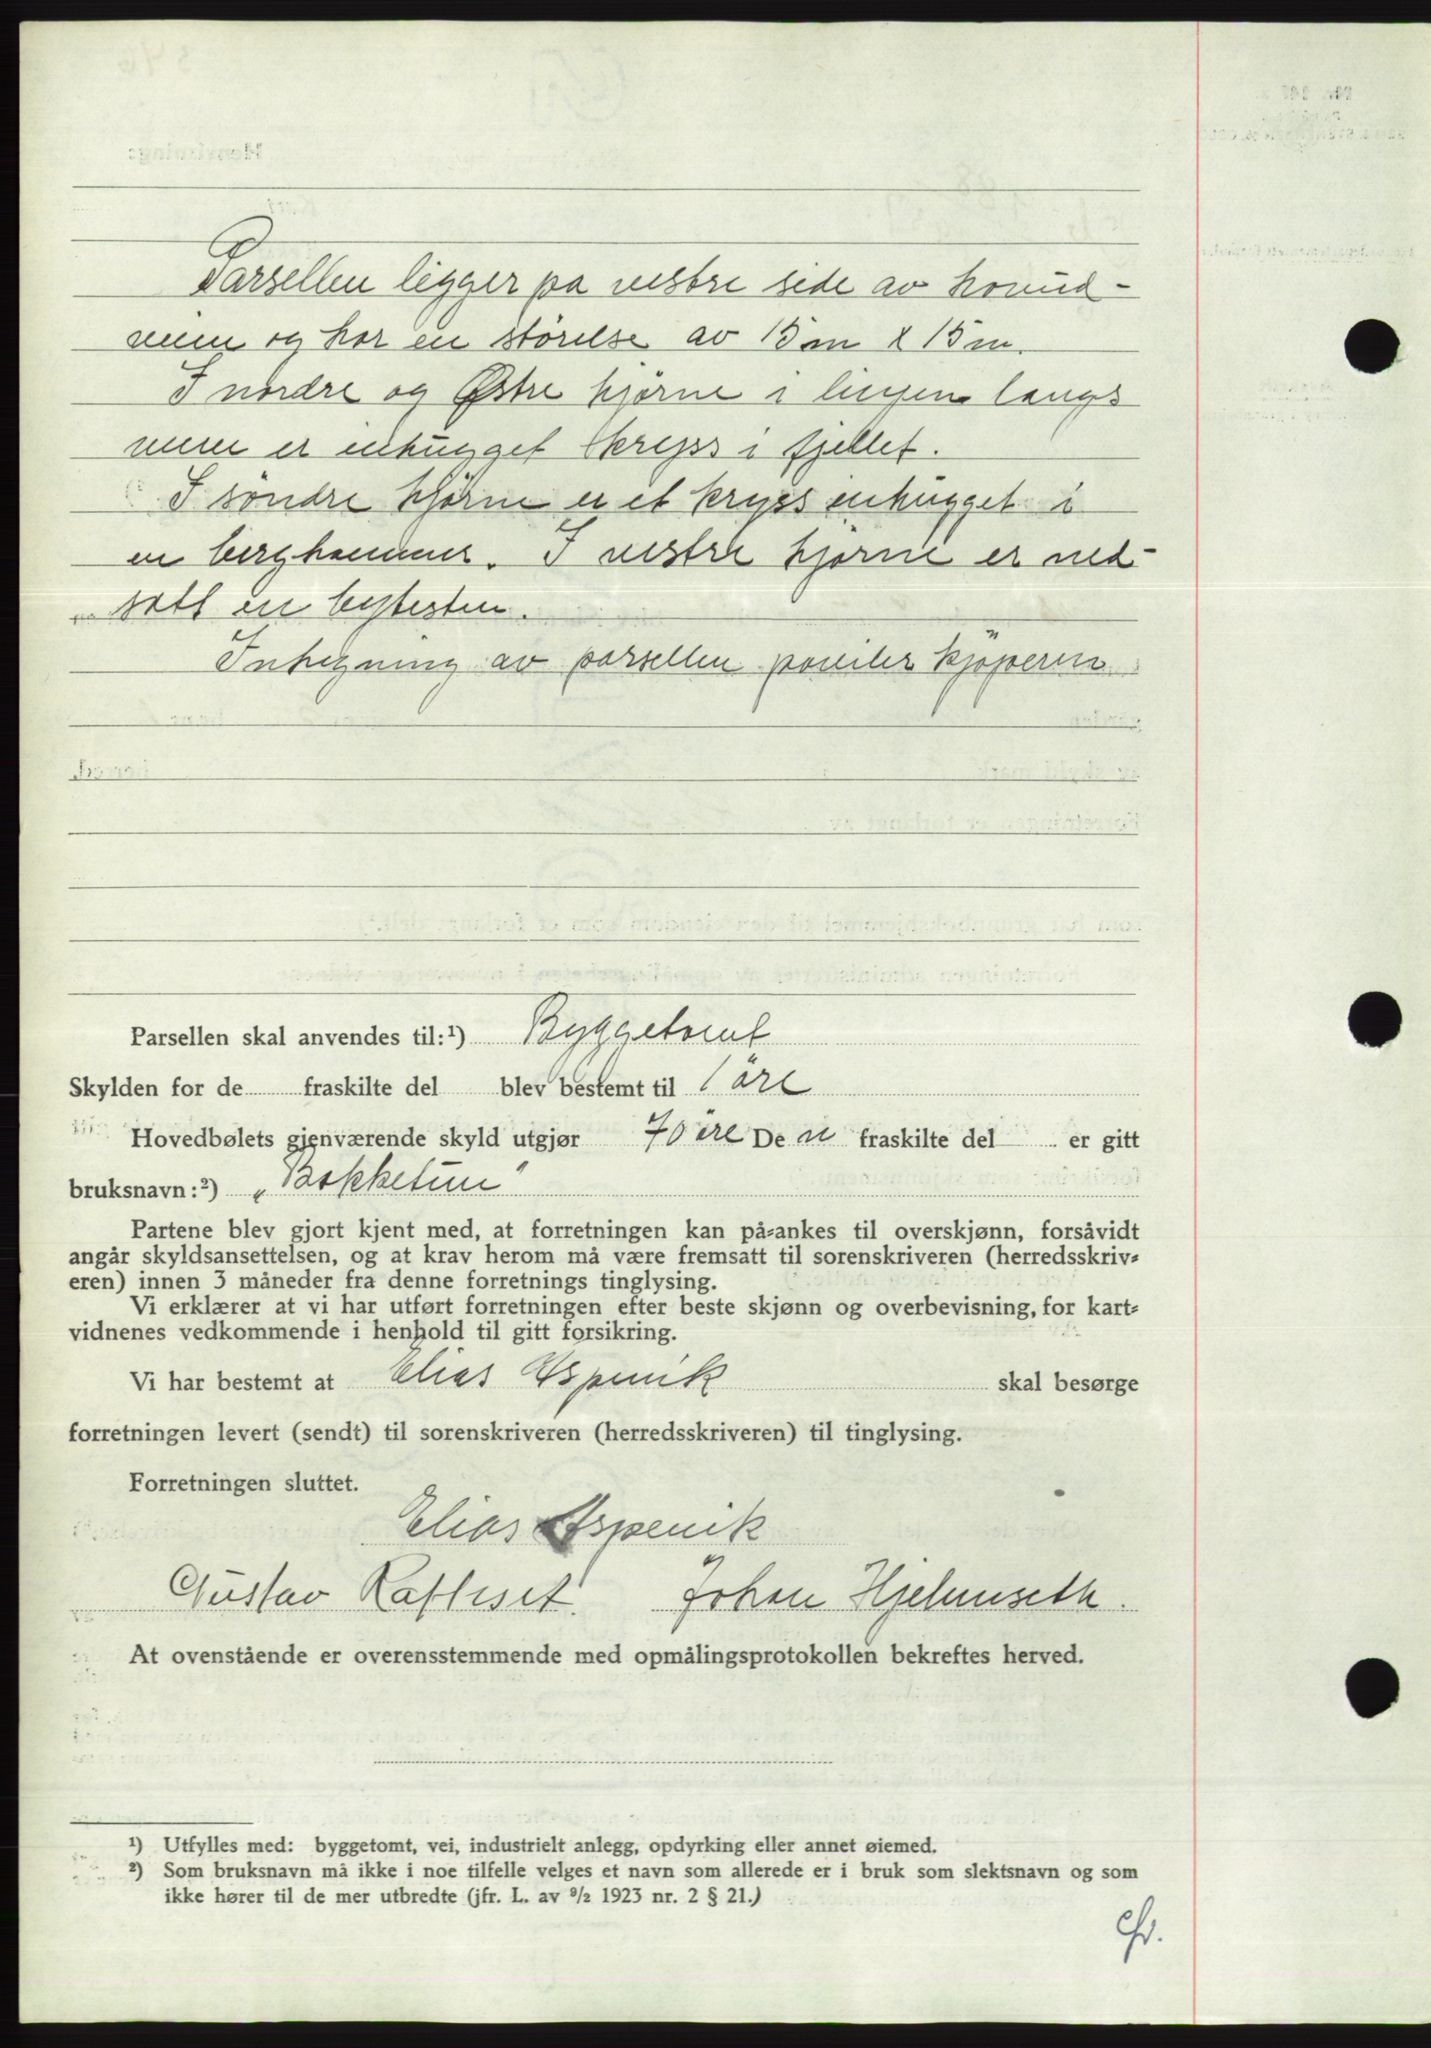 Parsellen ligger på vestre side av hovud-
veien og har en störelse av 15m x 15m.
I nordre og Østre hjörne i linjen langs
veien er inhugget kryss i fjellet.
I söndre hjörne er et kryss inhugget i
en berghammer. I vestre hjörne er ned-
satt en bytesten.
Inhegning av parsellen påviler kjöperen
Parsellen skal anvendes til:¹) Byggetomt
Skylden for de fraskilte del blev bestemt til 1 öre
Hovedbølets gjenværende skyld utgjør 70 öre De n fraskilte del er gitt
bruksnavn:²) „Bakketun"
Partene blev gjort kjent med, at forretningen kan på-ankes til overskjønn, forsåvidt
angår skyldsansettelsen, og at krav herom må være fremsatt til sorenskriveren (herredsskriv-
eren) innen 3 måneder fra denne forretnings tinglysing.
Vi erklærer at vi har utført forretningen efter beste skjønn og overbevisning, for kart-
vidnenes vedkommende i henhold til gitt forsikring.
Vi har bestemt at Elias Aspevik skal besørge
forretningen levert (sendt) til sorenskriveren (herredsskriveren) til tinglysing.
Forretningen sluttet.
Elias Aspevik
Gustav Rafteset. Johan Hjelmseth.
At ovenstående er overensstemmende med opmålingsprotokollen bekreftes herved.
¹) Utfylles med: byggetomt, vei, industrielt anlegg, opdyrking eller annet øiemed.
²) Som bruksnavn må ikke i noe tilfelle velges et navn som allerede er i bruk som slektsnavn og som
ikke hører til de mer utbredte (jfr. L. av ⁹/₂ 1923 nr. 2 § 21.)